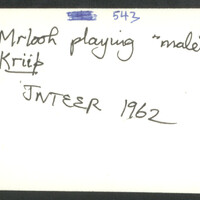 543
Mrlooh playing "male"
Kriip
JNTEER 1962